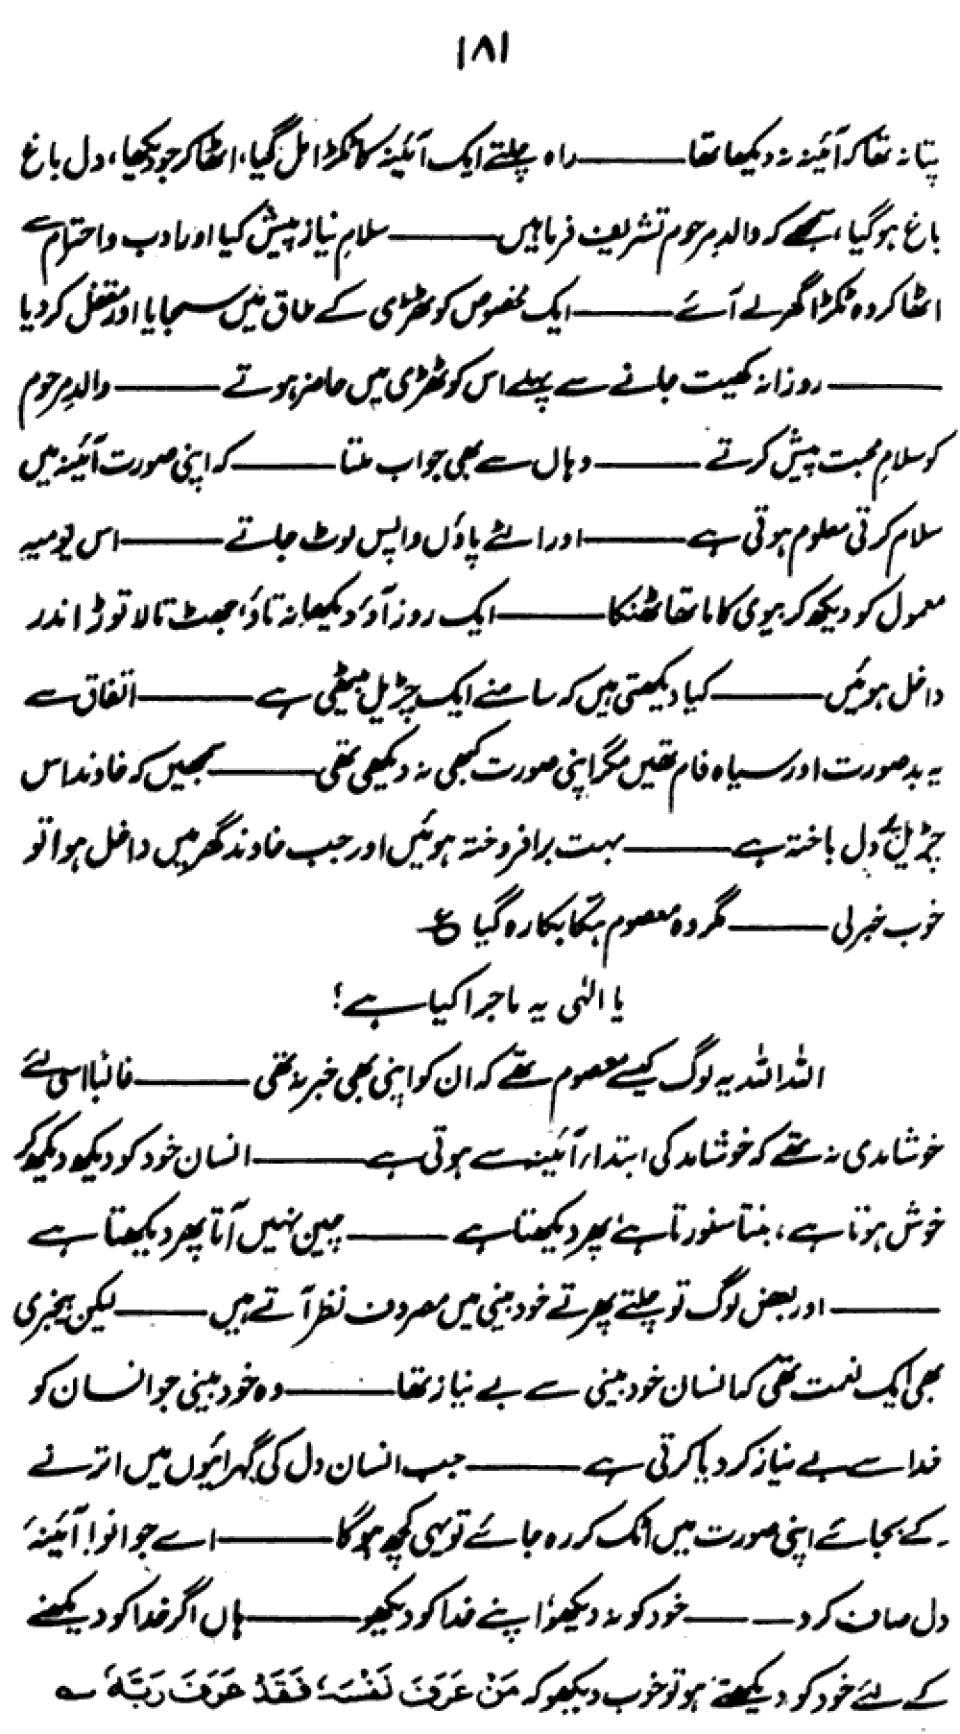 ۱۸۱
پتا نہ تھا کہ آئینہ نہ دیکھا تھا ——— راہ چلتے ایک آئینہ کا ٹکڑا مل گیا، اٹھا کر جو دیکھا، دل باغ
باغ ہو گیا، سمجھے کہ والدِ مرحوم تشریف فرما ہیں ——— سلامِ نیاز پیش کیا اور ادب و احترام سے
اٹھا کر وہ ٹکڑا گھر لے آئے ——— ایک مخصوص کوٹھڑی کے طاق میں سجایا اور مقفل کر دیا
——— روزانہ کھیت جانے سے پہلے اس کوٹھڑی میں حاضر ہوتے ——— والدِ مرحوم
کو سلامِ محبت پیش کرتے ——— وہاں سے بھی جواب ملتا ——— کہ اپنی صورت آئینہ میں
سلام کرتی معلوم ہوتی ہے ——— اور الٹے پاؤں واپس لوٹ جاتے ——— اس یومیہ
معمول کو دیکھ کر بیوی کا ماتھا ٹھنکا ——— ایک روز آؤ دیکھا نہ تاؤ، جھٹ تالا توڑ اندر
داخل ہوئیں ——— کیا دیکھتی ہیں کہ سامنے ایک چڑیل بیٹھی ہے ——— اتفاق سے
یہ بدصورت اور سیاہ فام تھیں مگر اپنی صورت کبھی نہ دیکھی تھی ——— سمجھیں کہ خاوند اس
چڑیل پہ دل باختہ ہے ——— بہت برافروختہ ہوئیں اور جب خاوند گھر میں داخل ہوا تو
خوب خبر لی ——— مگر وہ معصوم ہکّا بکّا رہ گیا ؏
یا الٰہی یہ ماجرا کیا ہے!
اللہ اللہ یہ لوگ کیسے معصوم تھے کہ ان کو اپنی بھی خبر نہ تھی ——— غالباً اسی لئے
خوشامدی نہ تھے کہ خوشامد کی ابتداء آئینہ سے ہوتی ہے ——— انسان خود کو دیکھ دیکھ کر
خوش ہوتا ہے، بنتا سنورتا ہے، پھر دیکھتا ہے ——— چین نہیں آتا پھر دیکھتا ہے
——— اور بعض لوگ تو چلتے پھرتے خود بینی میں مصروف نظر آتے ہیں ——— لیکن بیخبری
بھی ایک نعمت تھی کہ انسان خود بینی سے بے نیاز تھا ——— وہ خود بینی جو انسان کو
خدا سے بے نیاز کر دیا کرتی ہے ——— جب انسان دل کی گہرائیوں میں اترنے
کے بجائے اپنی صورت میں اٹک کر رہ جائے تو یہی کچھ ہو گا ——— اے جوانو! آئینۂ
دل صاف کرو ——— خود کو نہ دیکھو، اپنے خدا کو دیکھو ——— ہاں اگر خدا کو دیکھنے
کے لئے خود کو دیکھتے ہو تو خوب دیکھو کہ مَنْ عَرَفَ نَفْسَہٗ فَقَدْ عَرَفَ رَبَّہٗ ؎